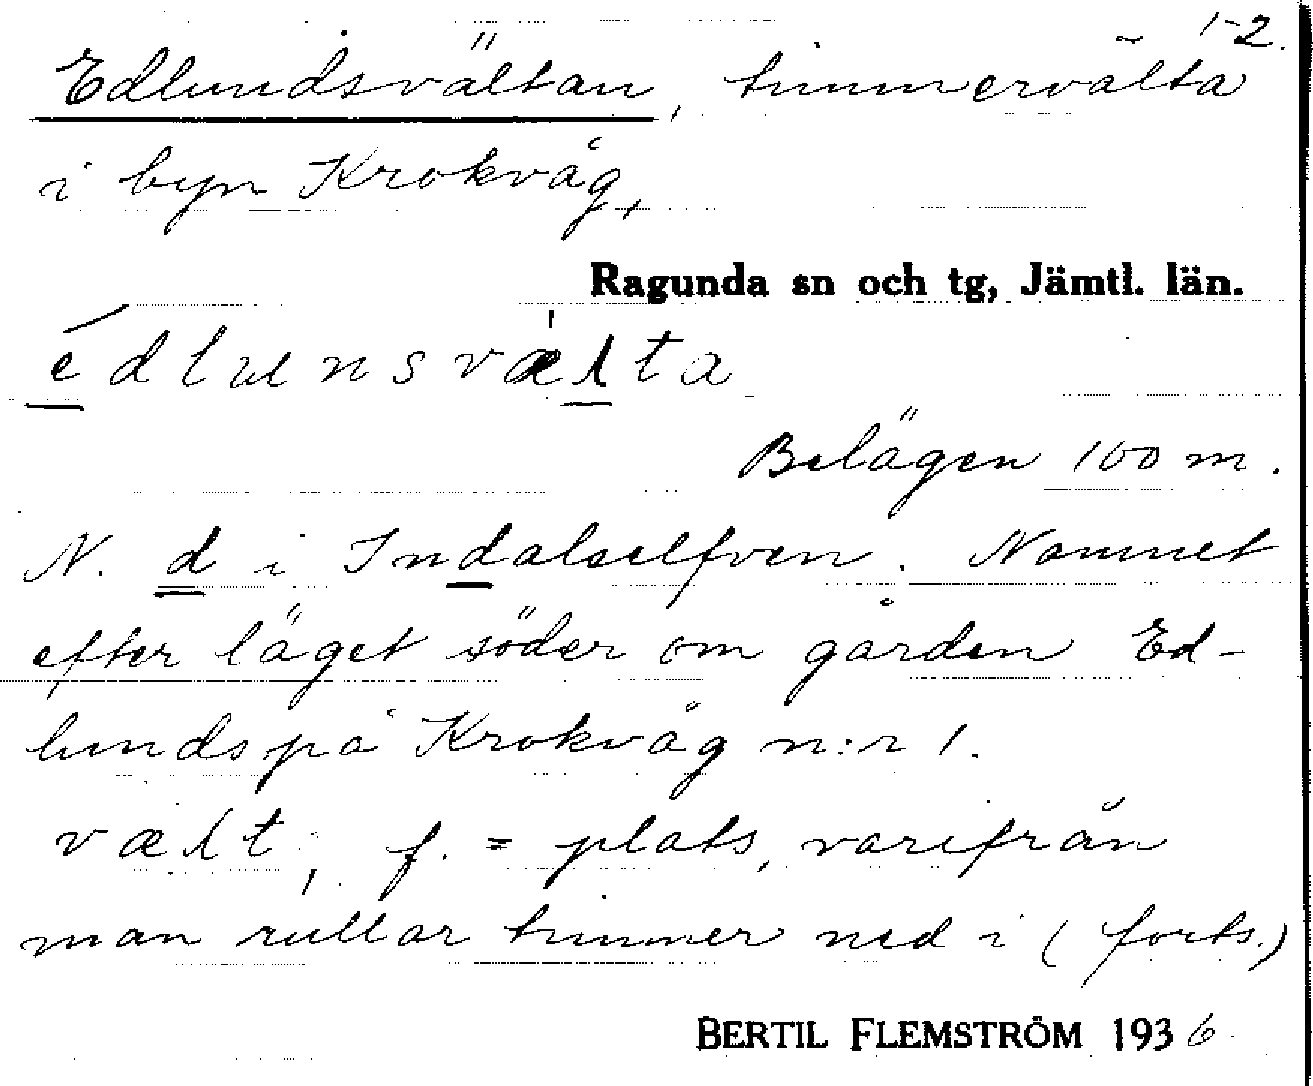 1-2.
Edlundsvältan, timmervälta
i byn Krokvåg,
Ragunda sn och tg, Jämtl. län.
édlunsvælta
Belägen 100 m.
N. d i Indalselfven. Namnet
efter läget söder om gården Ed-
lunds på Krokvåg n:r 1.
vælt, f. = plats, varifrån
man rullar timmer ned i (forts.)
BERTIL FLEMSTRÖM 1936